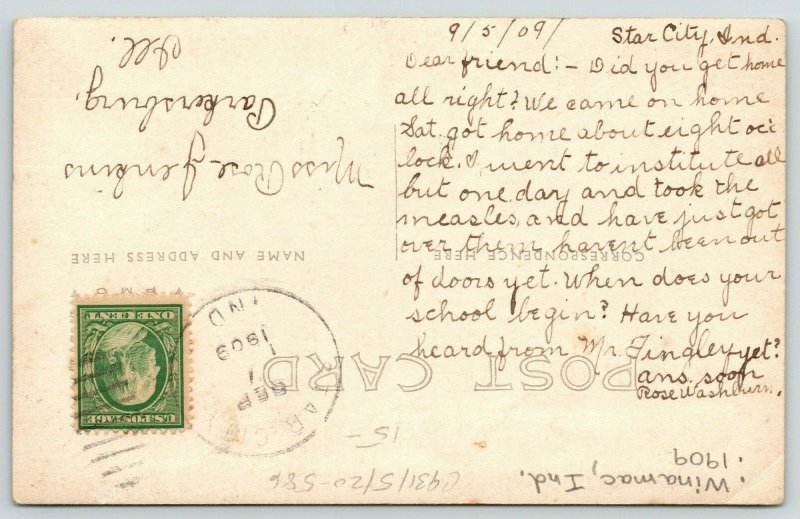 9/5/09/ Star City, Ind.
Dear friend:- Did you get home
all right? We came on home
Sat. got home about eight oc'
lock. I, went to institute all
but one day and took the
measles, and have just got
over them, havent been out
of doors yet. When does your
school begin? Have you
heard from Mr. Tingley yet?
ans. soon
Rose Washburn.
Miss Rose Jenkins
Parkersburg,
Ill.
NAME AND ADDRESS HERE
CORRESPONDENCE HERE
POST CARD
U.S. POSTAGE
ONE CENT
STAR CITY
SEP
7
1909
IND
15-
C931/5/20-586
: Winamac, Ind.
: 1909